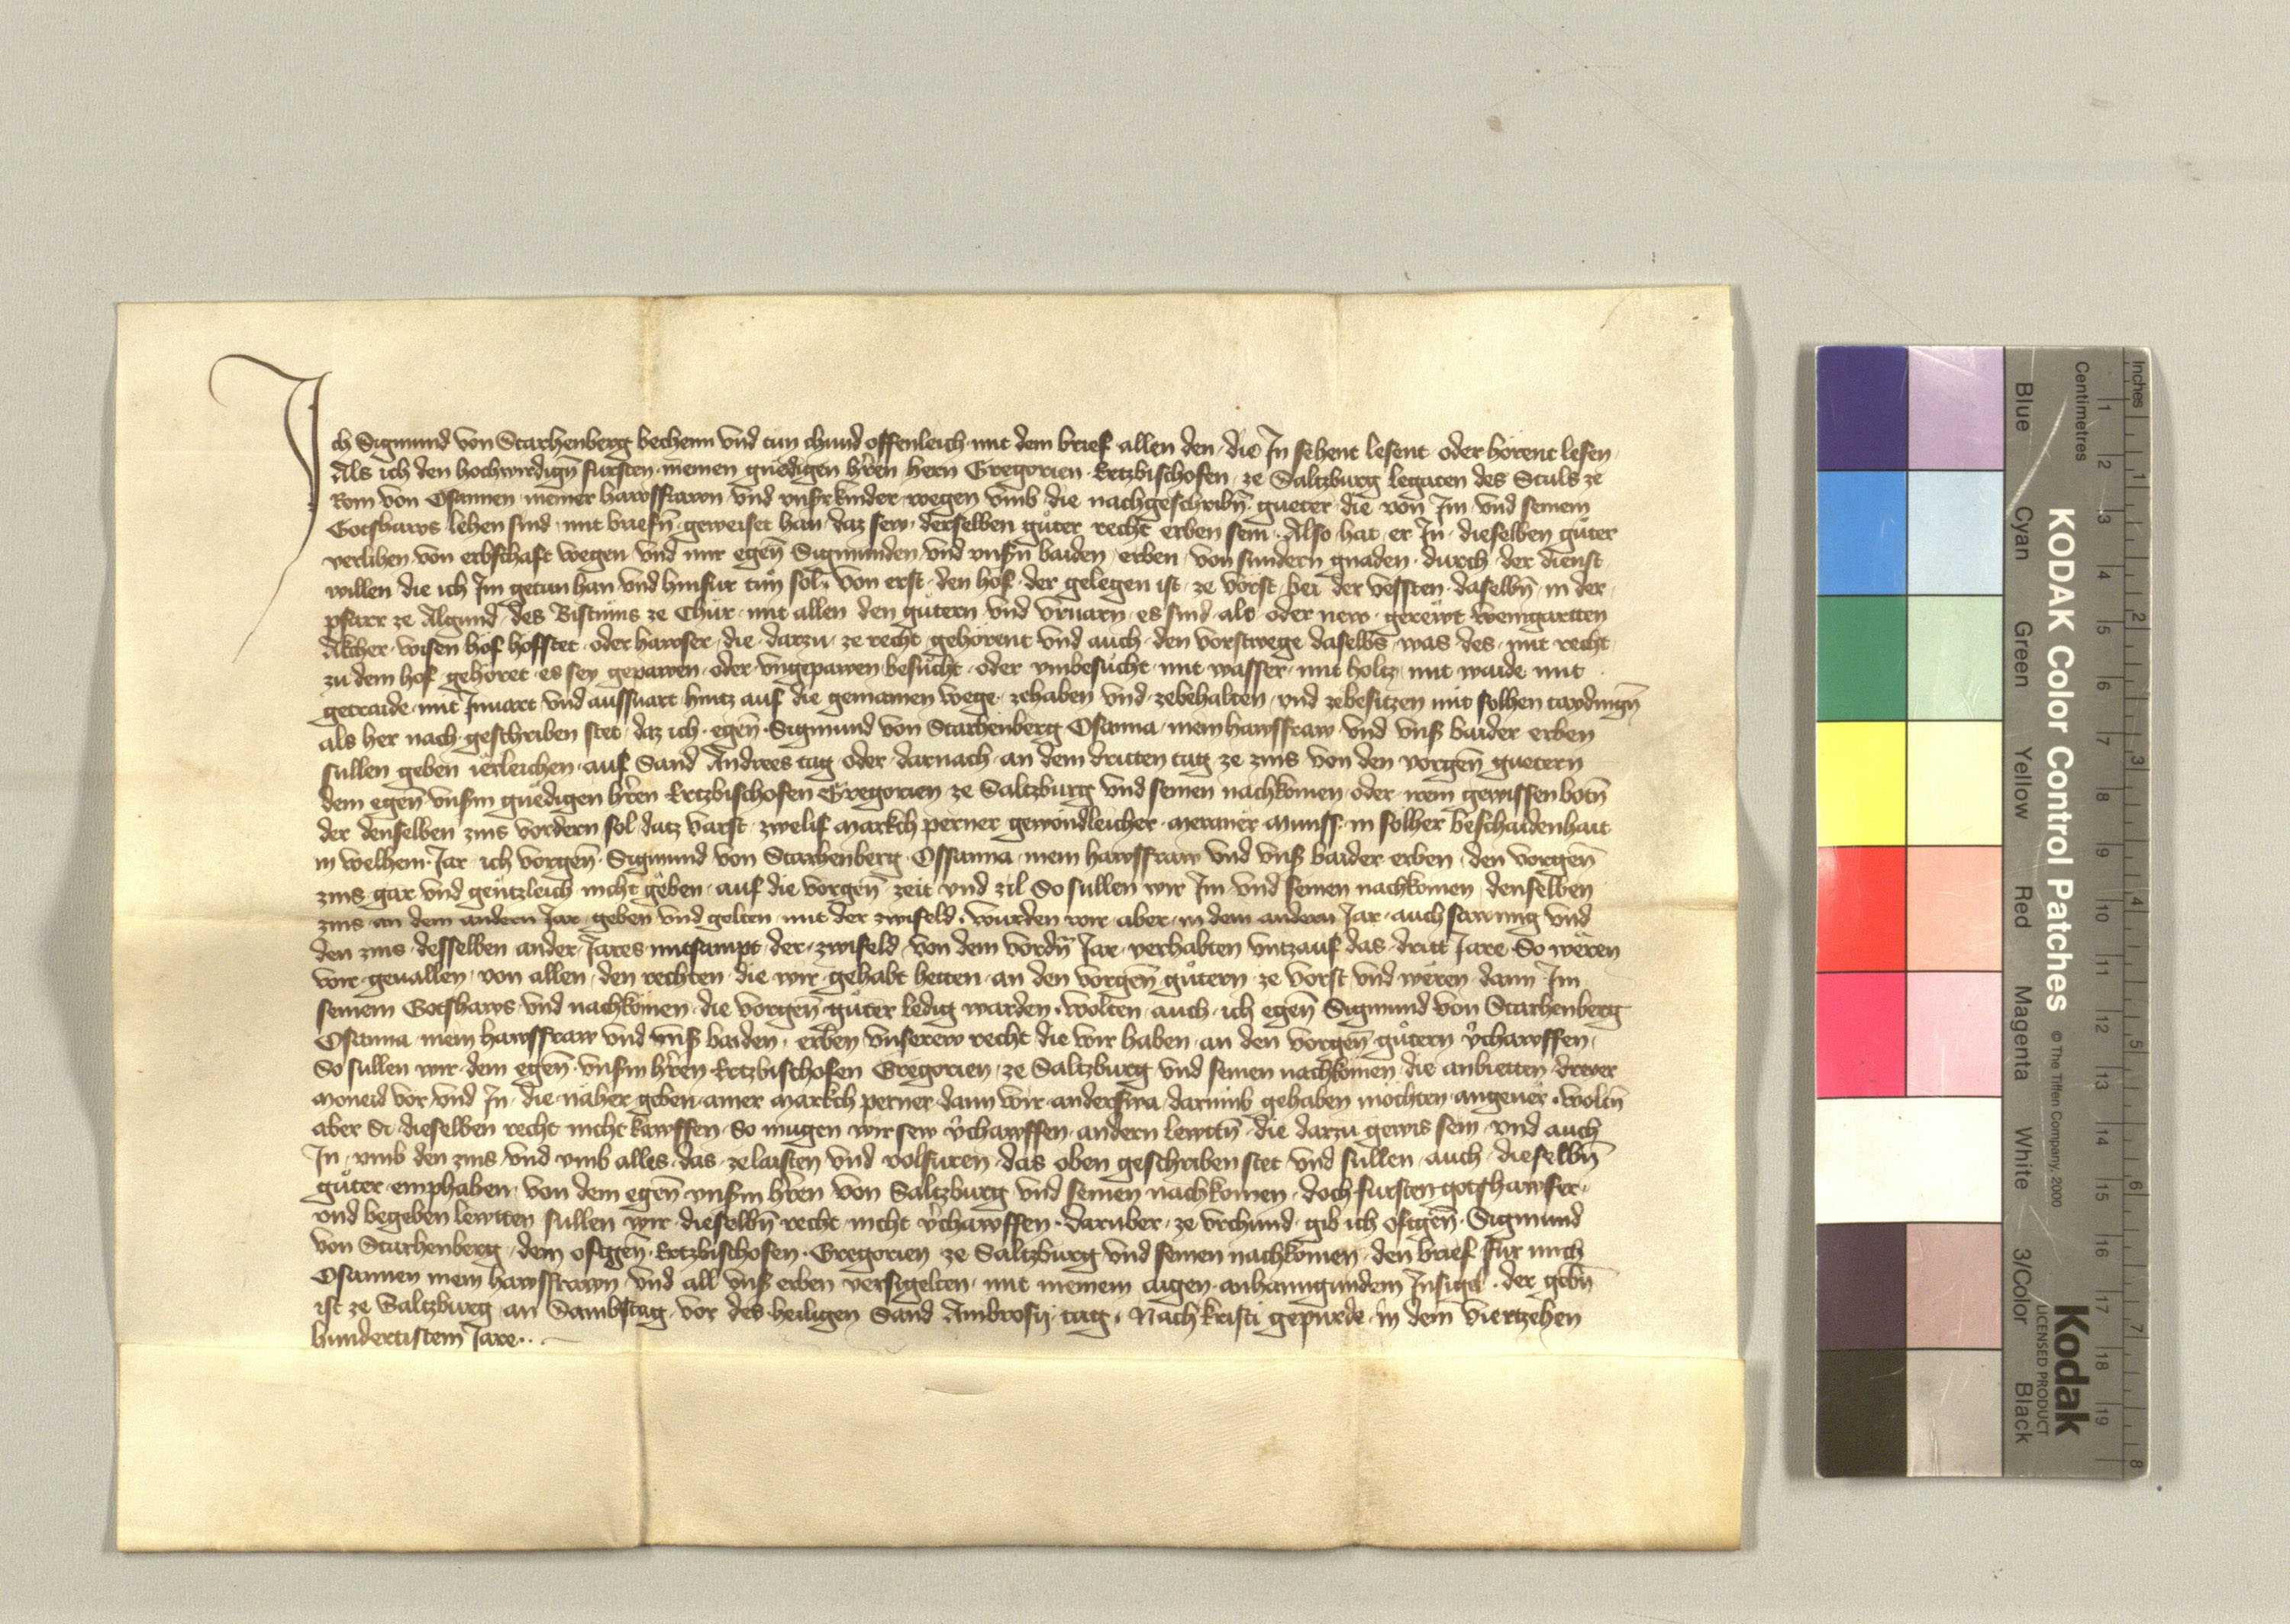 Ich Sigmund von Starhenberg bechenn vnd tun chund offenleich mit dem brief allen den die In sehent lesent oder hörent lesen
Als ich den hochwirdign fursten meinen gnedigen hr̄en hern Gregorien Ertzbischofen ze Saltzburg legaten des Stuls ze
Rom von Osannen meiner hawsfrawn vnd vnsr kinder wegen vmb die nachgeschribn̄ gueter die von Im vnd seinem
Gotshaws lehen sind mit briefn̄ geweiset han daz sew derselben gůter recht erben sein Also hat er In dieselben gůter
verlihen von erbschaft wegen vnd mir egen̄ Sigmunden vnd vnsn̄ baiden erben von sundern gnaden durch der dienst
willen die ich Im getan han vnd hinfur tun sol von erst den hof der gelegen ist ze vorst bei der vessten daselbn̄ in der
pfarr ze Algund des Bistums ze Chur mit allen den gůtern vnd vruarn es sind alt oder new gerewt weingartten
Äkcher wisen hof hofstet oder hawser die darzu ze recht gehorent vnd auch den vorstwege daselbs was des mit recht
zu dem hof gehöret es sey gepawen oder vngepawen besůcht oder vmbesůcht mit wasser mit holtz mit waide mit
getraide mit Inuart vnd aussuart hintz auf die gemainen wege zehaben vnd zebehalten vnd zebesitzen mit solhen taydingn̄
als her nach geschriben stet daz ich egen̄ Sigmund von Starhenberg Osanna mein hawsfraw vnd vnsr baider erben
sullen geben ierleichen auf Sand Andrees tag oder darnach an dem dritten tag ze zins von den vorgen̄ guetern
dem egen̄ vnsrm gnedigen hr̄en Ertzbischofen Gregorien ze Saltzburg vnd seinen nachkomen oder irem gewissen botn̄
der denselben zins vordern sol datz varst zwelif markch perner gewondleicher meraner munss in solher beschaidenhait
in welhem Jar ich vorgen̄ Sigmund von Starhenberg Ossanna mein hawsfraw vnd vnsr baider erben den vorgen̄
zins gar vnd gentzleich nicht geben auf die vorgen̄ zeit vnd zil So sullen wir Im vnd seinen nachkomen denselben
zins an dem andern Jar geben vnd gelten mit der zwifeld wurden wir aber in dem andern Jar auch sawmig vnd
den zins desselben ander Jares mitsampt der zwifeld von dem vordn̄ Jar verhabten vntzauf das dritt Jare So weren
wir geuallen von allen den rechten die wir gehabt hetten an den vorgen̄ gůtern ze vorst vnd weren dann Im
seinem Gotshaws vnd nachkomen die vorgen̄ gůter ledig warden wolten auch ich egen̄ Sigmund von Starhenberg
Osanna mein hawsfraw vnd vnsr baiden erben vnserew recht die wir haben an den vorgen̄ gůtern v̄chawffen
So sullen wir dem egen̄ vnsrm hr̄en Ertzbischofen Gregorien ze Saltzburg vnd seinen nachkomen die anbietten dreyer
moneid vor vnd In die naher geben ainer markch perner dann wir anderswa darumb gehaben mochten angeuer woltn̄
aber Si dieselben recht nicht kawffen So mugen wir sew v̄chawffen andern lewttn̄ die darzu gewis sein vnd auch
In vmb den zins vnd vmb alles das zelaisten vnd volfuren das oben geschriben stet vnd sullen auch dieselbn̄
gůter emphahen von dem egen̄ vnsrm hr̄en von Saltzburg vnd seinen nachkomen doch fursten gotshawser
vnd begeben lewtten sullen wir dieselbn̄ recht nicht v̄chawffen Daruber ze vrchund gib ich oftgen̄ Sigmund
von Starhenberg dem oftgen̄ Ertzbischofen Gregorien ze Saltzburg vnd seinen nachkomen den brief fur mich
Osannen mein hawsfrawn vnd all vnsr erben versigelten mit meinem aigen anhanngundem Insigl der gebn̄
ist ze Saltzburg an Sambstag vor des heiligen Sand Ambrosij tag Nach kristi gepurde in dem viertzehen
hundertistem Jare
Inches
Centimetres
1 2 3 4 5 6 7 8
1 2 3 4 5 6 7 8 9 10 11 12 13 14 15 16 17 18 19
KODAK Color Control Patches
© The Tiffen Company, 2000
Kodak
LICENSED PRODUCT
Blue Cyan Green Yellow Red Magenta White 3/Color Black